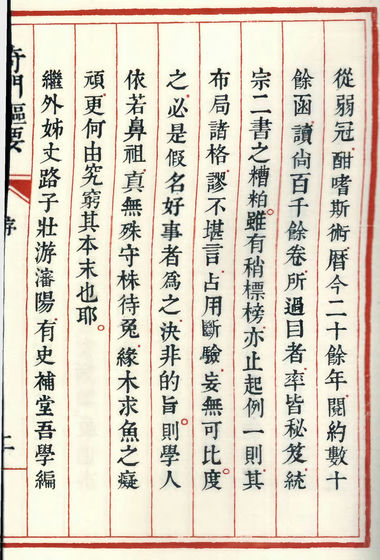 從弱冠酣嗜斯術曆今二十餘年閱約數十
餘函讀尙百千餘卷所過目者率皆秘笈統
宗二書之糟粕。雖有稍標榜亦止起例一則其
布局諸格謬不堪言占用斷驗妄無可比度。
之必是假名好事者為之決非的旨。則學人
依若鼻祖真無殊守株待兔緣木求魚之癡
頑更何由究窮其本末也耶。
繼外姊丈路子壯游瀋陽有史補堂吾學編
奇門樞要
序